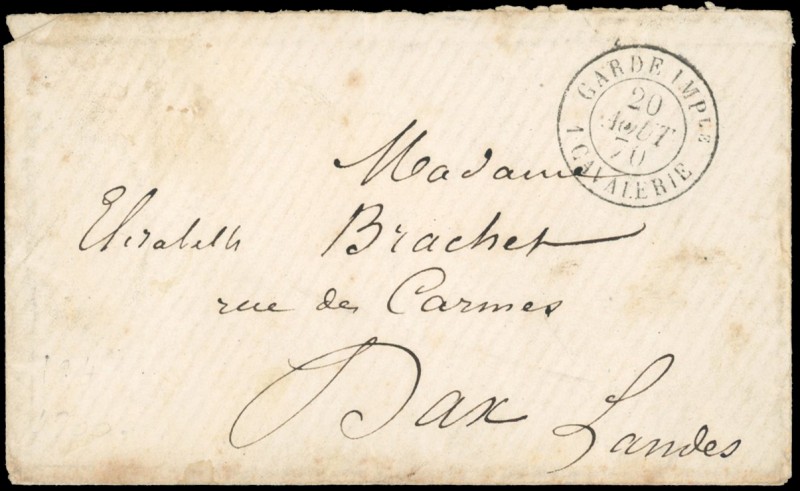 GARDE IMPLE
20
AOUT
70
1 CAVALERIE
Madame
Elisabeth Brachet
rue des Carmes
Dax Landes